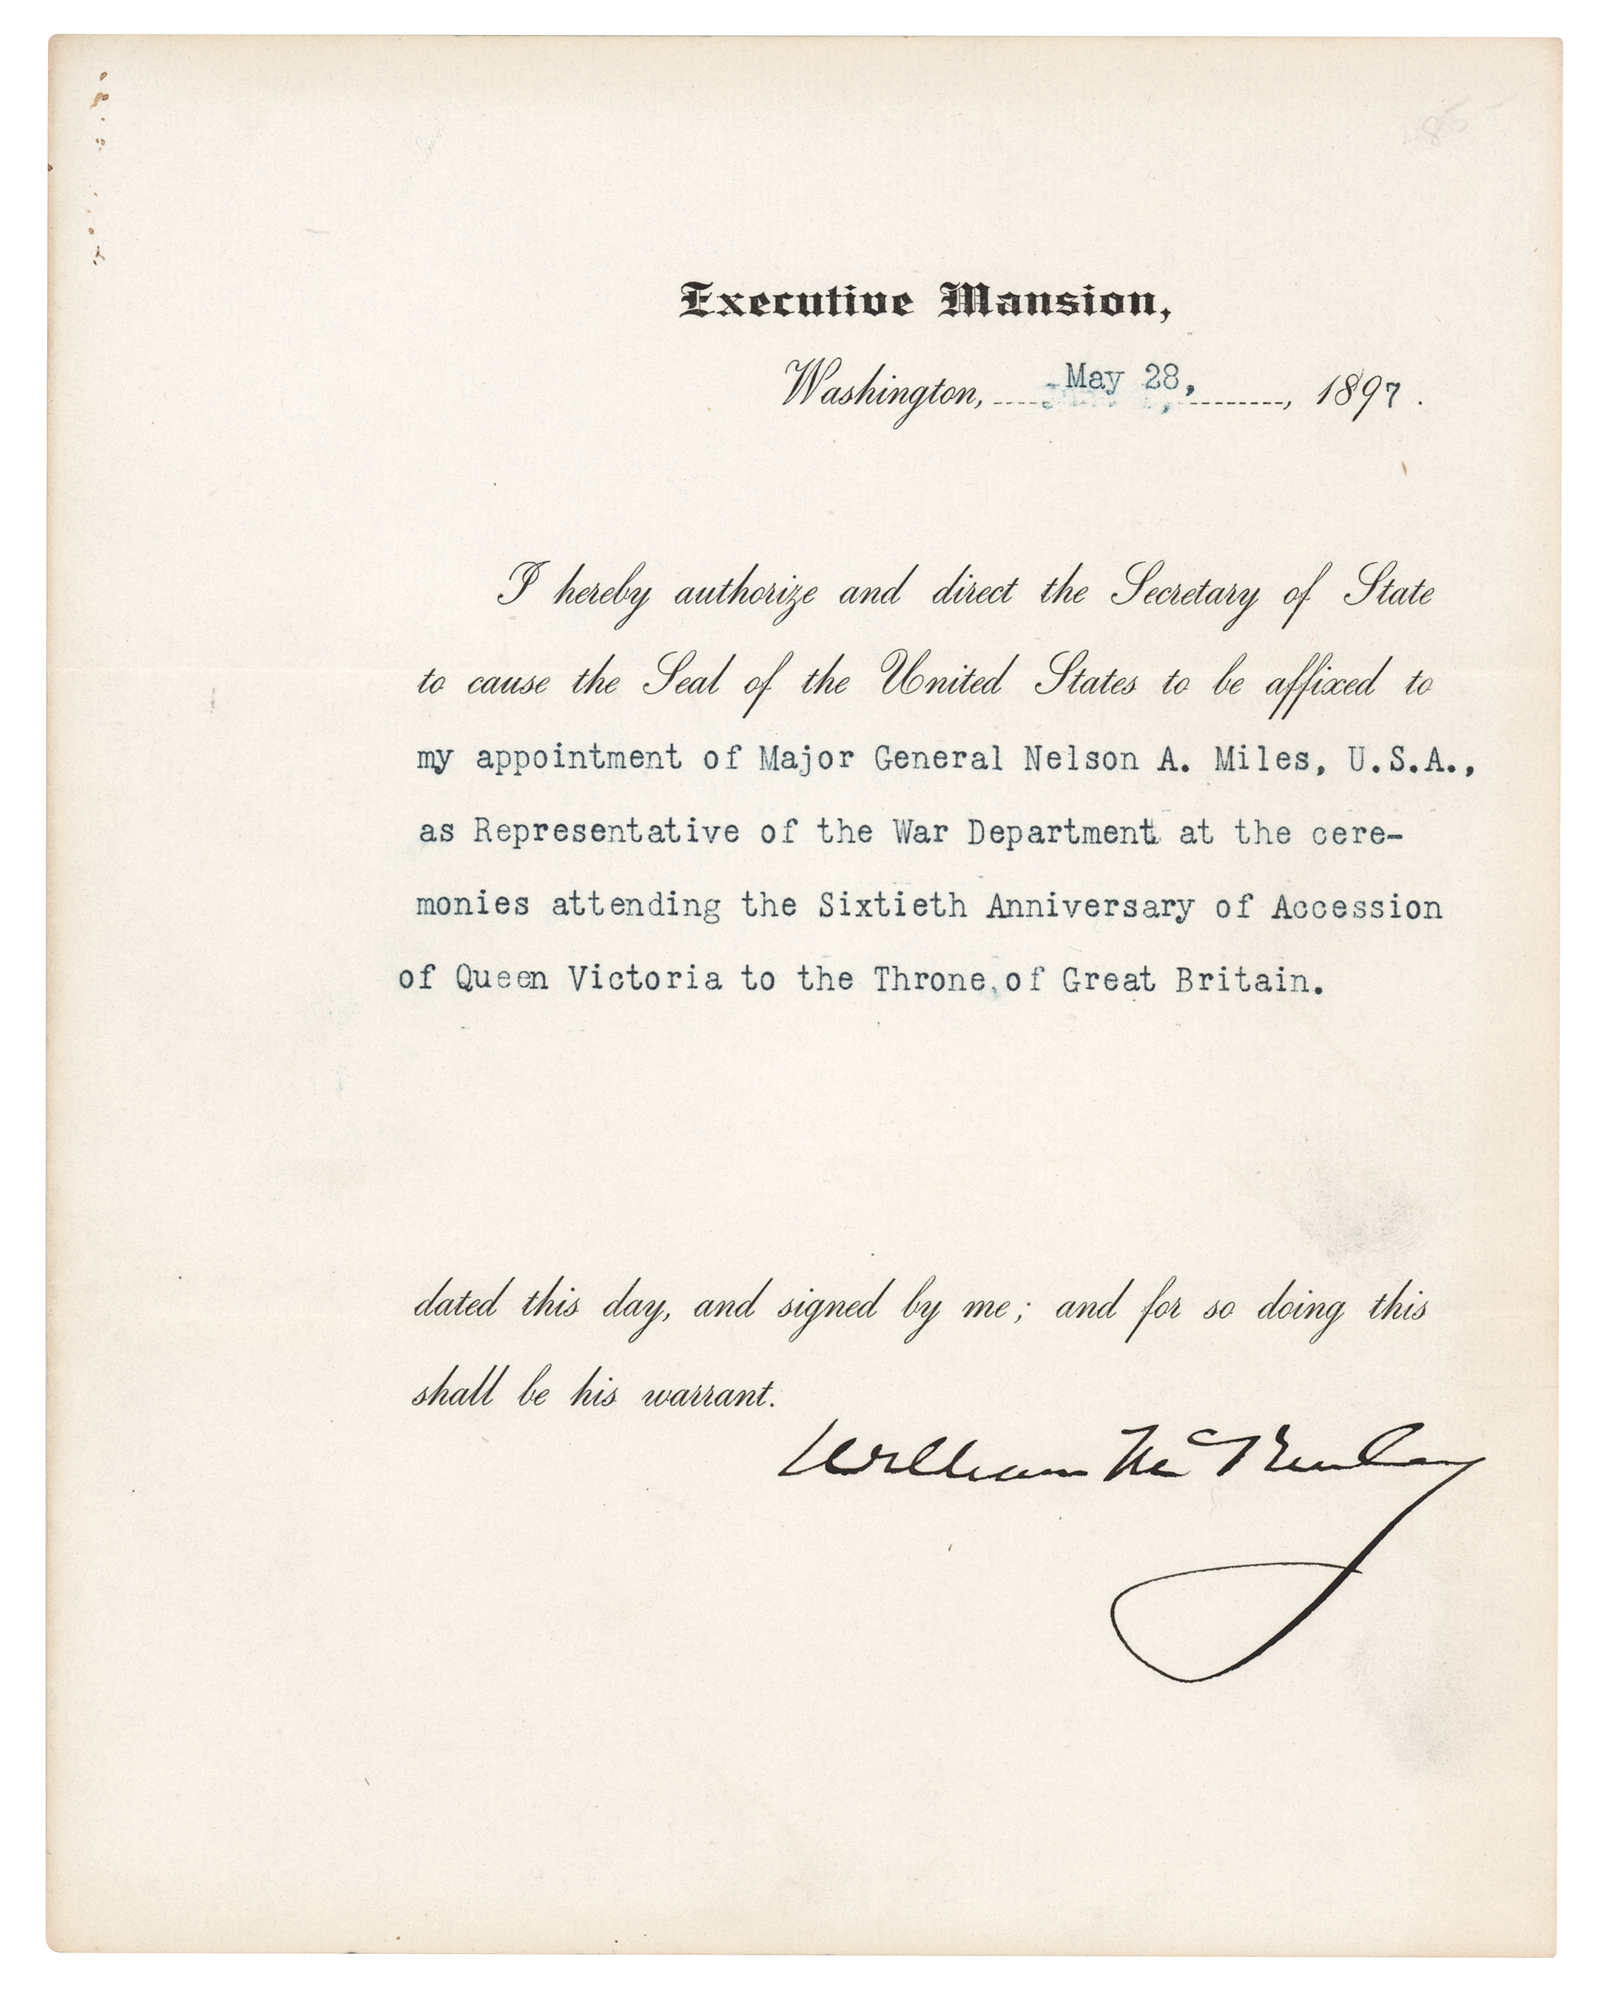 Executive Mansion,
Washington, May 28, 1897.
I hereby authorize and direct the Secretary of State
to cause the Seal of the United States to be affixed to
my appointment of Major General Nelson A. Miles, U.S.A.,
as Representative of the War Department at the cere-
monies attending the Sixtieth Anniversary of Accession
of Queen Victoria to the Throne of Great Britain.
dated this day, and signed by me; and for so doing this
shall be his warrant.
William McKinley